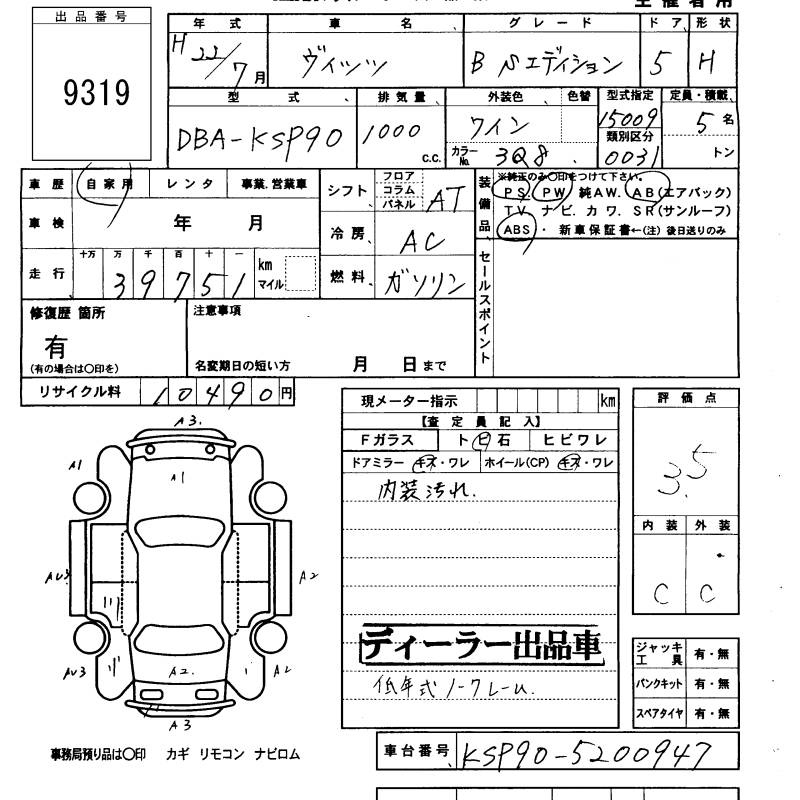 主催者用
出品番号
9319
年式 車名 グレード ドア 形状
H22/7月 ヴィッツ B Sエディション 5 H
型式 排気量 外装色 色替 型式指定 定員・積載
DBA-KSP90 1000 c.c. ワイン 15009 5名
カラーNo. 3Q8 類別区分 0031 トン
車歴 自家用 レンタ 事業.営業車
シフト フロア コラム パネル AT
装備品 ※純正のみ〇印をつけて下さい。
PS. PW. 純AW. AB(エアバック)
TV. ナビ. カワ. SR(サンルーフ)
ABS・新車保証書←(注)後日送りのみ
車検 年 月
冷房 AC
走行 十万 万 千 百 十 一
39751 km マイル
燃料 ガソリン
セールスポイント
修復歴 箇所
有
(有の場合は〇印を)
注意事項
名変期日の短い方 月 日まで
リサイクル料 10490円
現メーター指示 km
【査定員記入】
Fガラス トビ石 ヒビワレ
ドアミラー キズ・ワレ ホイール(CP) キズ・ワレ
内装汚れ.
ディーラー出品車
低年式ノークレーム.
評価点
3.5
内装 外装
C C
ジャッキ工具 有・無
パンクキット 有・無
スペアタイヤ 有・無
A3.
A1
A1
AU3
A2
AU3
A2.
A2
A3
事務局預り品は〇印 カギ リモコン ナビロム
車台番号 KSP90-5200947